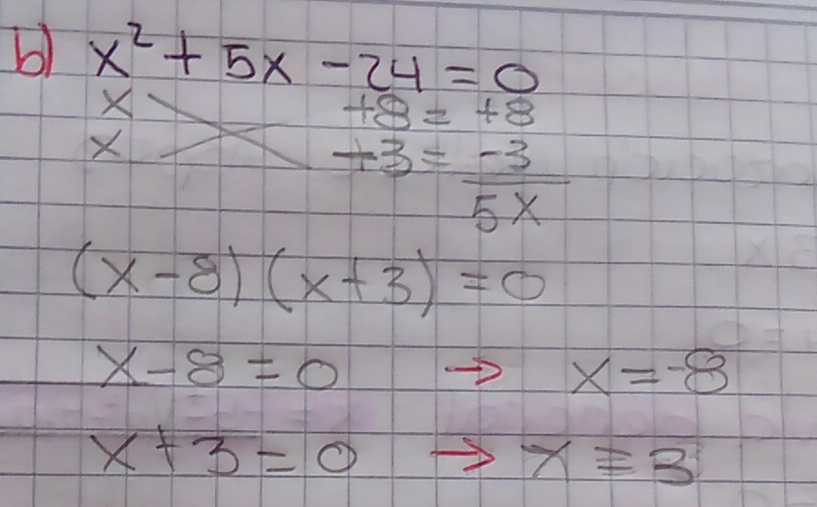 b) x² + 5x - 24 = 0
x +8 = +8
x +3 = -3
5x
(x-8) (x+3) = 0
x-8 = 0 → x = -8
x+3 = 0 → x = 3